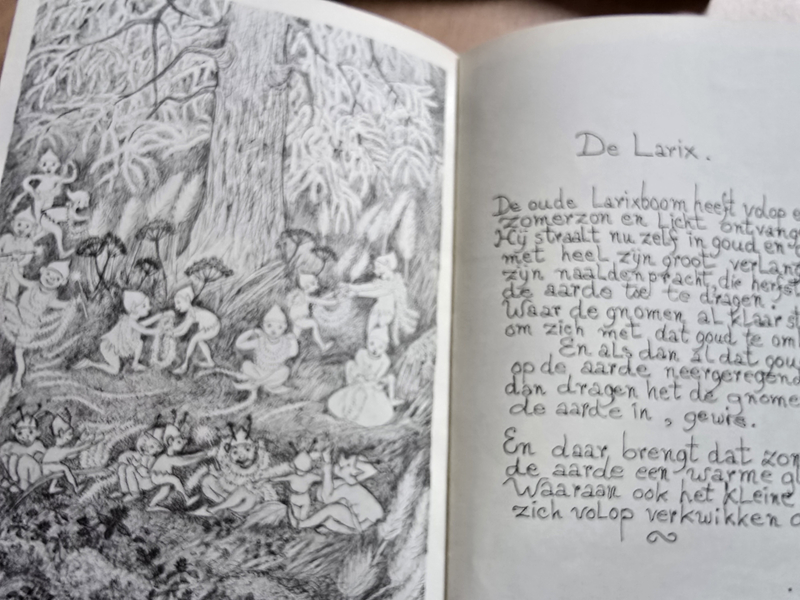 De Larix.
De oude Larixboom heeft volop
zomerzon en Licht
Hij straalt nu zelf in goud en
met heel zijn groot
zijn naaldenpracht, die
de aarde toe te dragen.
Waar de gnomen al klaar
om zich met dat goud te
En als dan al dat
op de aarde
dan dragen het de
de aarde in, gewis.
En daar brengt dat
de aarde een warme
Waaraan ook het kleine
zich volop verkwikken